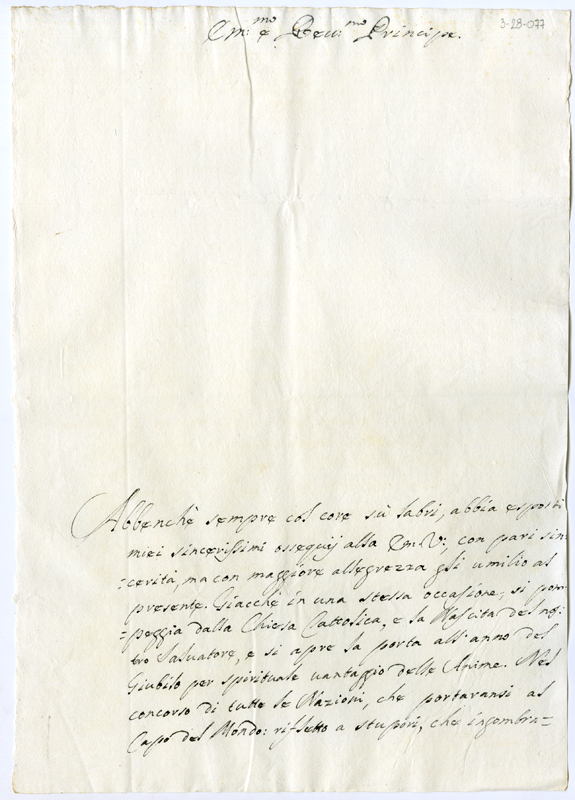 3-28-077
Em:mo e Reu:mo Principe.
Abbenchè sempre col core sù labri, abbia esposti
miei sincerissimi ossequij alla Em: V:, con pari sin
=cerità, ma con maggiore allegrezza gli umilio al
presente. Giacchè in una stessa occasione, si pom
=peggia dalla Chiesa Cattolica, e la Nascita del nos:
tro Saluatore, e si apre la porta all'anno del
Giubilo per spirituale uantaggio delle Anime. Nel
concorso di tutte le Nazioni, che portaransi al
Capo del Mondo: rifletto a stupori, che ingombra=